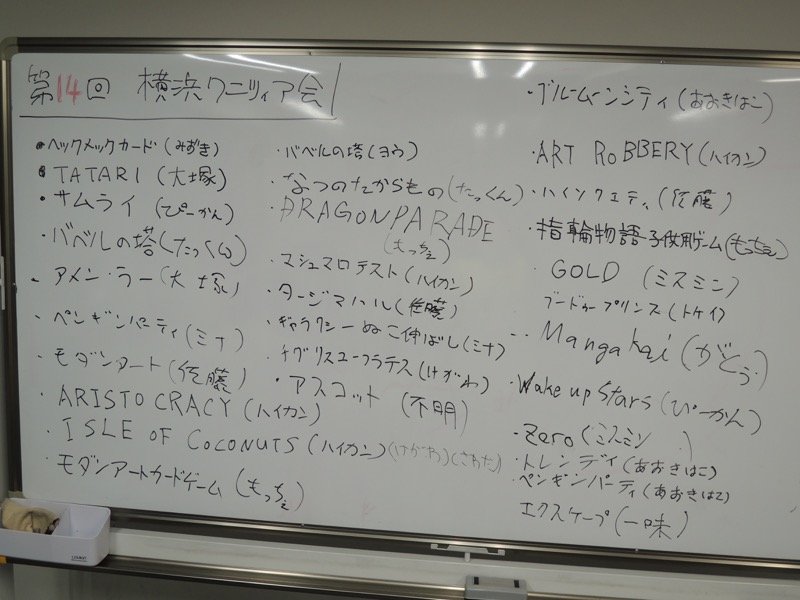 第14回 横浜クニツィア会
・ヘックメックカード(みずき)
・TATARI (大塚)
・サムライ (ぴーかん)
・バベルの塔(たっくん)
・アメン・ラー(大塚)
・ペンギンパーティ(ミナ)
・モダンアート(佐藤)
・ARISTOCRACY (ハイカン)
・ISLE OF COCONUTS (ハイカン)(けがわ)(さわだ)
・モダンアートカードゲーム (もっちぇ)
・バベルの塔(ヨウ)
・なつのたからもの(たっくん)
・DRAGONPARADE
(もっちぇ)
・マシュマロテスト(ハイカン)
・タージマハル(佐藤)
・ギャラクシーねこ伸ばし(ミナ)
・チグリスユーフラテス(けがわ)
・アスコット (不明)
・ブルームーンシティ(あおきはこ)
・ART ROBBERY (ハイカン)
・ハイソサエティ (佐藤)
・指輪物語子供用ゲーム(もっちぇ)
GOLD (ミスミン)
ブードゥープリンス(トケイ)
・Manga Kai (がとう)
・Wake up Stars (ぴーかん)
・Zero (ミスミン)
・トレンディ(あおきはこ)
・ペンギンパーティ(あおきはこ)
エクスケープ(一味)